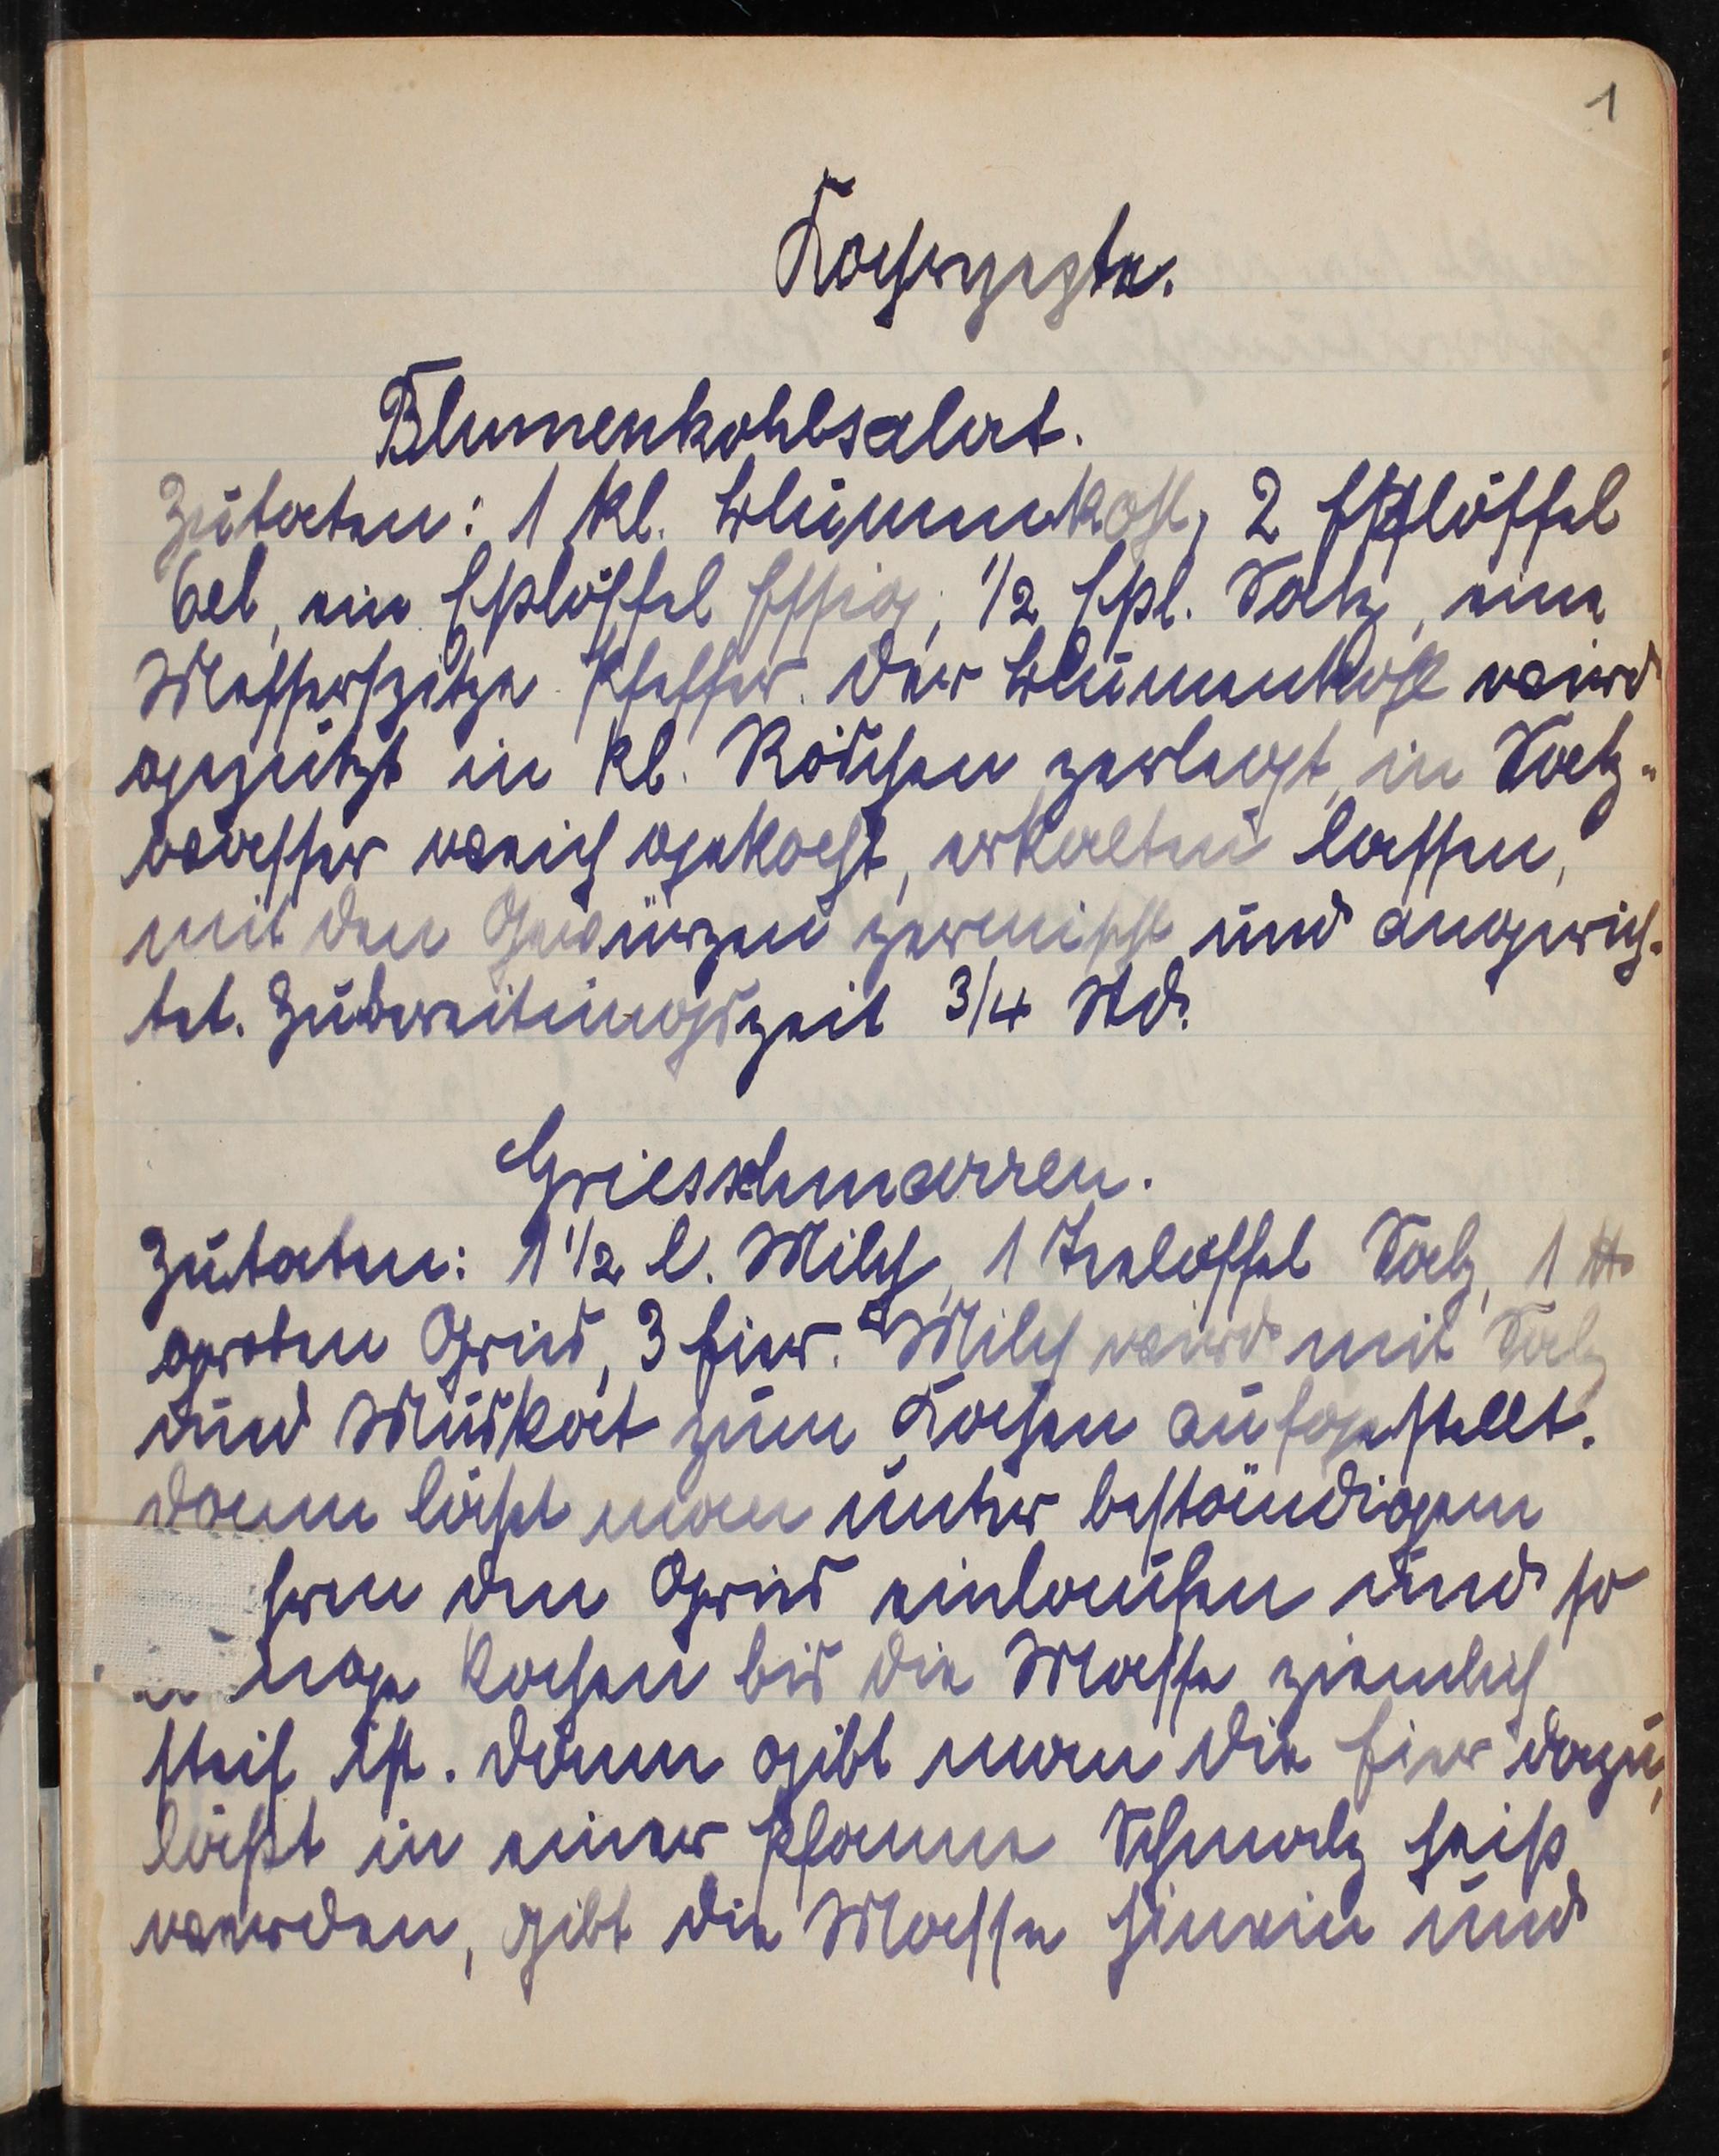 1
Kochrezepte.
Blumenkohlsalat.
Zutaten: 1 kl. Blumenkohl, 2 Eßlöffel
Oel, ein Eßlöffel Essig, 1/2 Eßl. Salz, eine
Messerspitze Pfeffer. Der Blumenkohl wird
geputzt in kl. Röschen zerlegt, in Salz-
wasser weich gekocht, erkalten lassen,
mit den Gewürzen vermischt und angerich-
tet. Zubereitungszeit 3/4 Std.
Griesschmarren.
Zutaten: 1 1/2 l. Milch, 1 Teelöffel Salz, 1 ℔
groben Gries, 3 Eier. Milch wird mit Salz
und Muskat zum Kochen aufgestellt.
Dann läßt man unter beständigem
hren den Gries einlaufen und so
nge kochen bis die Masse ziemlich
steif ist. Dann gibt man die Eier dazu,
läßt in einer Pfanne Schmalz heiß
werden, gibt die Masse hinein und